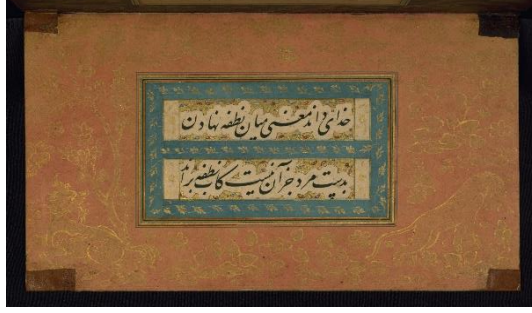 خدای داند معنی میان نطفه نهادن
بدست مرد جز آن نیست کاب نطفه براند